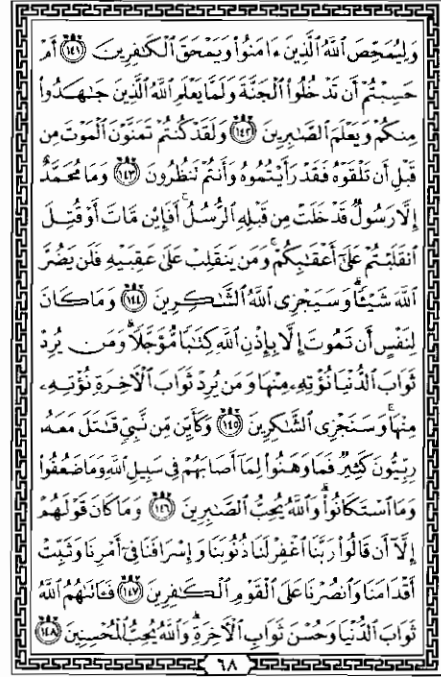 وَلِيُمَحِّصَ ٱللَّهُ ٱلَّذِينَ ءَامَنُوا۟ وَيَمْحَقَ ٱلْكَٰفِرِينَ ١٤١ أَمْ
حَسِبْتُمْ أَن تَدْخُلُوا۟ ٱلْجَنَّةَ وَلَمَّا يَعْلَمِ ٱللَّهُ ٱلَّذِينَ جَٰهَدُوا۟
مِنكُمْ وَيَعْلَمَ ٱلصَّٰبِرِينَ ١٤٢ وَلَقَدْ كُنتُمْ تَمَنَّوْنَ ٱلْمَوْتَ مِن
قَبْلِ أَن تَلْقَوْهُ فَقَدْ رَأَيْتُمُوهُ وَأَنتُمْ تَنظُرُونَ ١٤٣ وَمَا مُحَمَّدٌ
إِلَّا رَسُولٌ قَدْ خَلَتْ مِن قَبْلِهِ ٱلرُّسُلُ ۚ أَفَإِي۟ن مَّاتَ أَوْ قُتِلَ
ٱنقَلَبْتُمْ عَلَىٰٓ أَعْقَٰبِكُمْ ۚ وَمَن يَنقَلِبْ عَلَىٰ عَقِبَيْهِ فَلَن يَضُرَّ
ٱللَّهَ شَيْـًٔا ۗ وَسَيَجْزِى ٱللَّهُ ٱلشَّٰكِرِينَ ١٤٤ وَمَا كَانَ
لِنَفْسٍ أَن تَمُوتَ إِلَّا بِإِذْنِ ٱللَّهِ كِتَٰبًا مُّؤَجَّلًا ۗ وَمَن يُرِدْ
ثَوَابَ ٱلدُّنْيَا نُؤْتِهِۦ مِنْهَا وَمَن يُرِدْ ثَوَابَ ٱلْـَٔاخِرَةِ نُؤْتِهِۦ
مِنْهَا ۚ وَسَنَجْزِى ٱلشَّٰكِرِينَ ١٤٥ وَكَأَيِّن مِّن نَّبِىٍّ قَٰتَلَ مَعَهُۥ
رِبِّيُّونَ كَثِيرٌ فَمَا وَهَنُوا۟ لِمَآ أَصَابَهُمْ فِى سَبِيلِ ٱللَّهِ وَمَا ضَعُفُوا۟
وَمَا ٱسْتَكَانُوا۟ ۗ وَٱللَّهُ يُحِبُّ ٱلصَّٰبِرِينَ ١٤٦ وَمَا كَانَ قَوْلَهُمْ
إِلَّآ أَن قَالُوا۟ رَبَّنَا ٱغْفِرْ لَنَا ذُنُوبَنَا وَإِسْرَافَنَا فِىٓ أَمْرِنَا وَثَبِّتْ
أَقْدَامَنَا وَٱنصُرْنَا عَلَى ٱلْقَوْمِ ٱلْكَٰفِرِينَ ١٤٧ فَـَٔاتَىٰهُمُ ٱللَّهُ
ثَوَابَ ٱلدُّنْيَا وَحُسْنَ ثَوَابِ ٱلْـَٔاخِرَةِ ۗ وَٱللَّهُ يُحِبُّ ٱلْمُحْسِنِينَ ١٤٨
٦٨